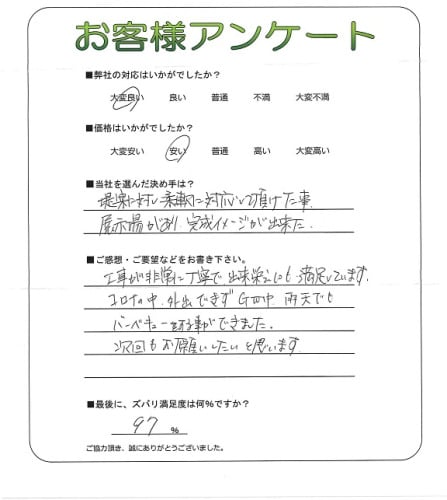 お客様アンケート
■弊社の対応はいかがでしたか？
大変良い 良い 普通 不満 大変不満
■価格はいかがでしたか？
大変安い 安い 普通 高い 大変高い
■当社を選んだ決め手は？
提案に対し柔軟に対応して頂けた事
展示場があり 完成イメージが出来た.
■ご感想・ご要望などをお書き下さい。
工事が非常に丁寧で 出来栄えにも 満足しています.
コロナの中. 外出できず GW中 雨天でも
バーベキューを事ができました.
次回もお願いしたいと思います.
■最後に、ズバリ満足度は何%ですか？
97 %
ご協力頂き、誠にありがとうございました。